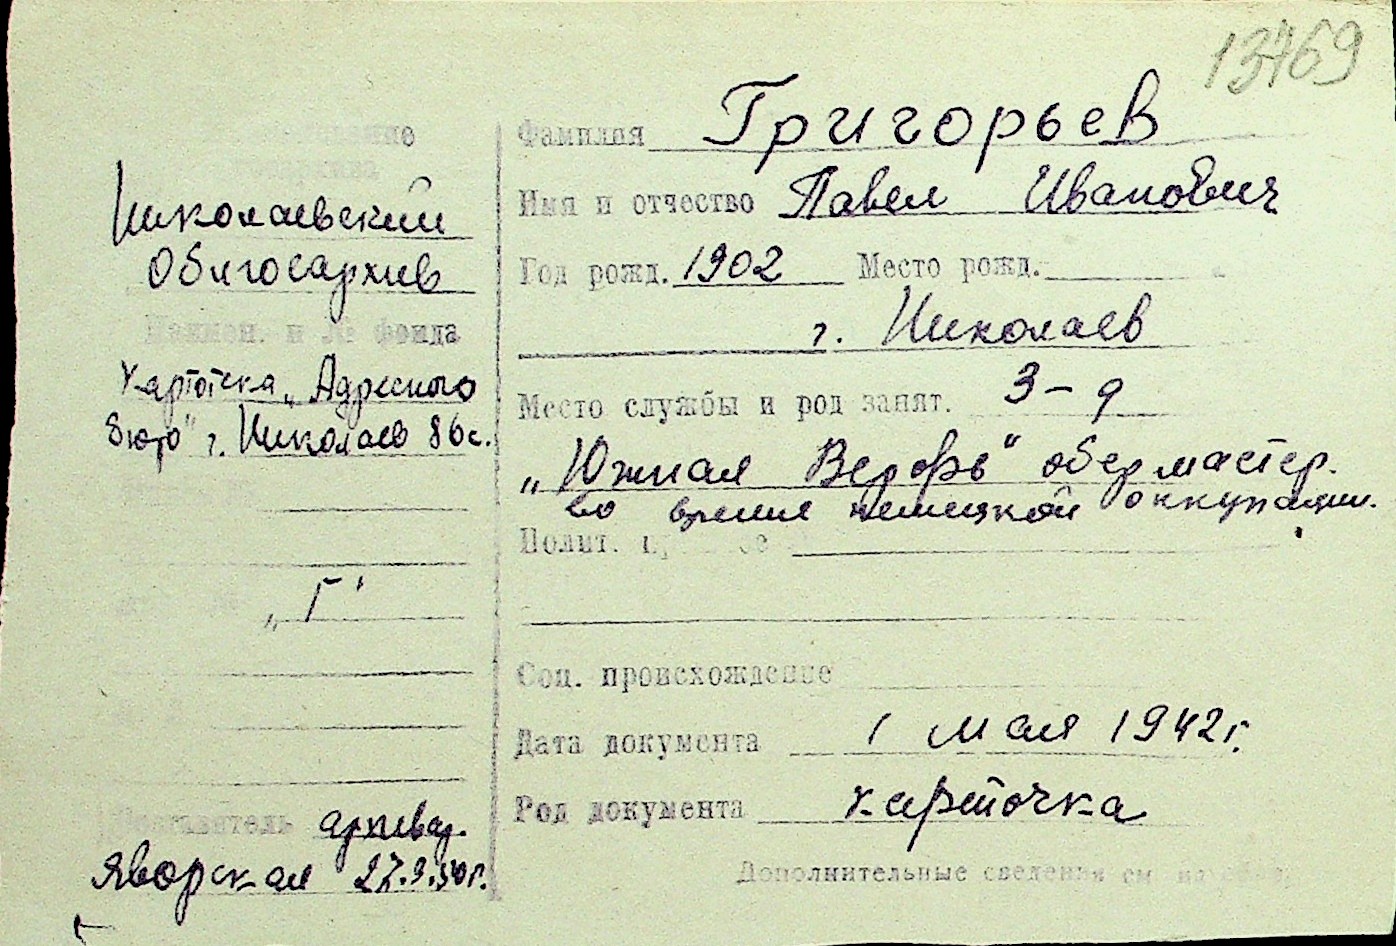 13469
Фамилия Григорьев
Имя и отчество Павел Иванович
Год рожд. 1902 Место рожд.
г. Николаев
Место службы и род занят. З-д
„Южная Верфь" обермастер.
во время немецкой оккупации.
Полит.
Соц. происхождение
Дата документа 1 мая 1942 г.
Род документа карточка
Дополнительные сведения см
госархива
Николаевский
Облгосархив
Наимен. и № фонда
Картотека „Адресного
бюро" г. Николаев 86с.
„Г"
Составитель архивар.
Яворская 27.9.50 г.